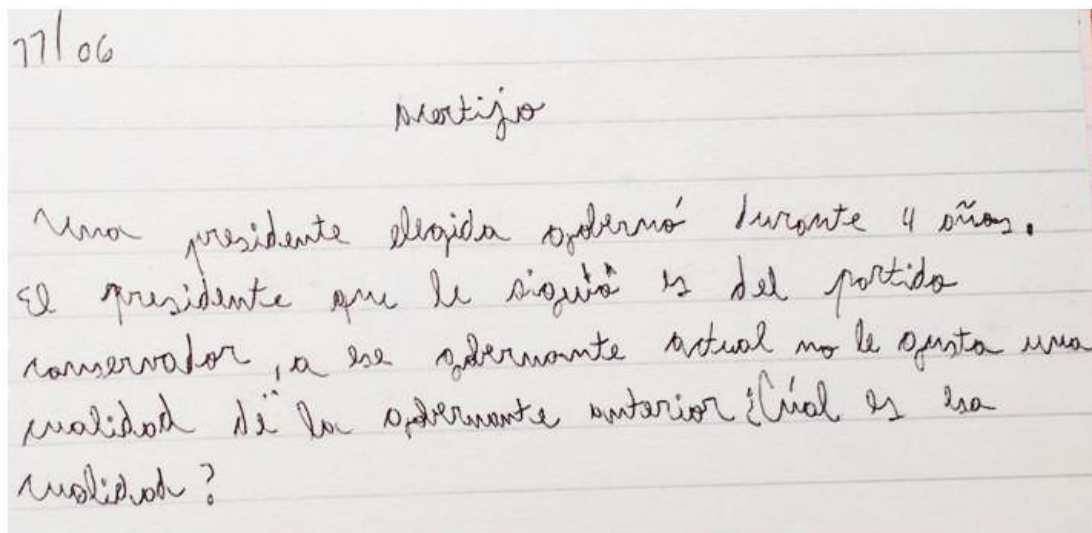 17/06
Acertijo
Una presidente elegida gobernó durante 4 años.
El presidente que le siguió es del partido
conservador, a ese gobernante actual no le gusta una
cualidad de la gobernante anterior ¿Cúal es esa
cualidad?